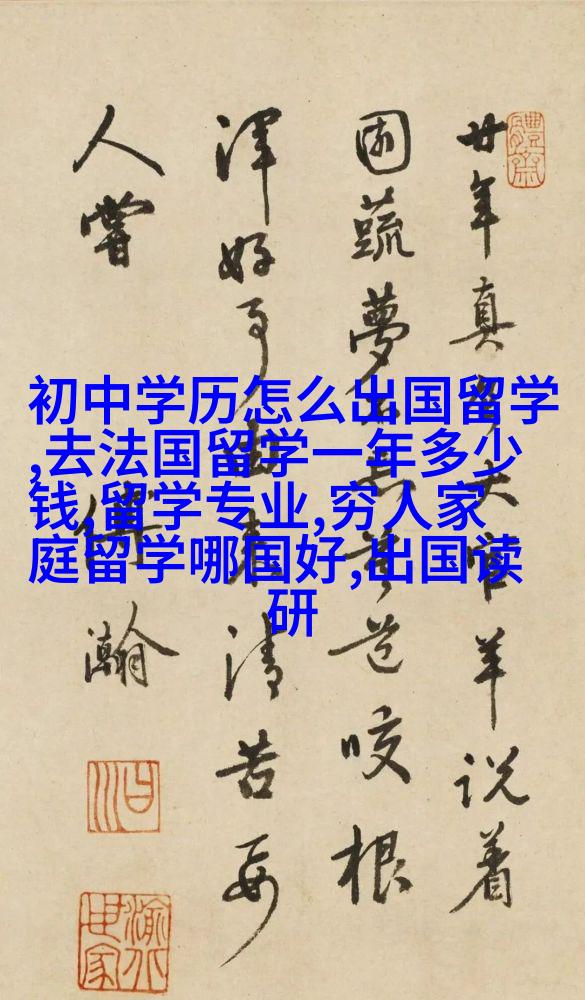 初中学历怎么出国留学
,去法国留学一年多少
钱,留学专业,穷人家
庭留学哪国好,出国读
研
廿年真大官羊說着
園蔬夢道咬根
渾好事來清苦要
人嘗
瀚
體齋
世家